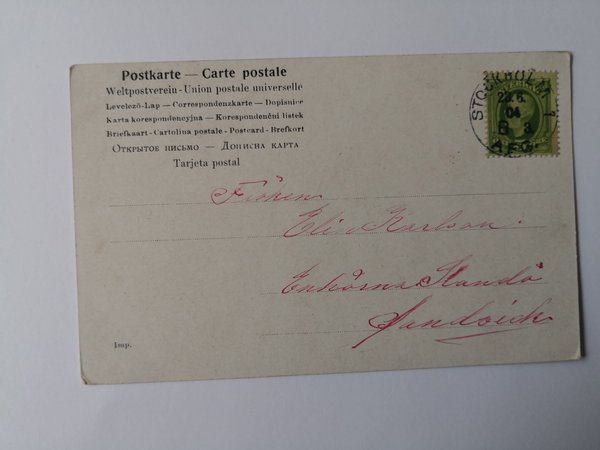 Postkarte — Carte postale
Weltpostverein - Union postale universelle
Levelező-Lap — Correspondenzkarte — Dopisnice
Karta korespondencyjna — Korespondenční lístek
Briefkaart - Cartolina postale - Postcard - Brefkort
Открытое письмо — Дописна карта
Tarjeta postal
STOCKHOLM 1
04
AFG.
Fröken
Elin Karlson.
Sandvick
Imp.